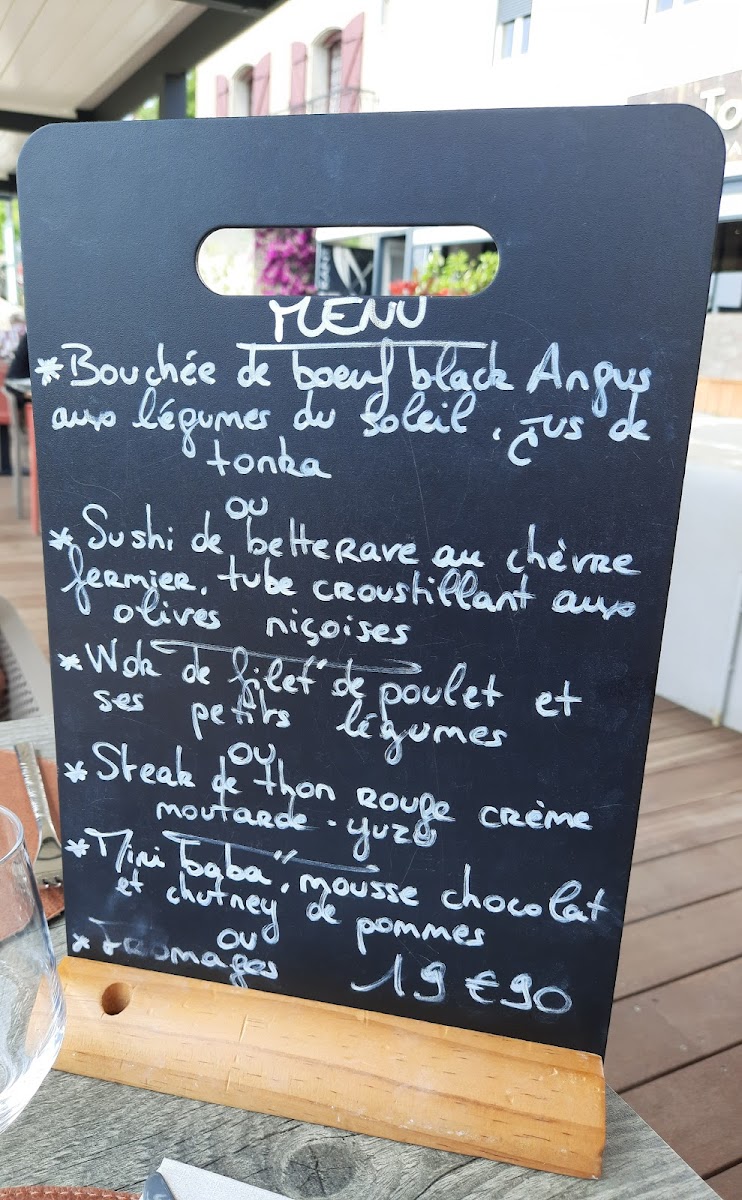 To
MENU
*Bouchée de boeuf black Angus
aux légumes du soleil, jus de
tonka
ou
* Sushi de betterave au chèvre
fermier, tube croustillant aux
olives niçoises
*Wok de filet de poulet et
ses petits légumes
ou
* Steak de thon rouge crème
moutarde - yuzu
*"Mini baba", mousse chocolat
et chutney de pommes
ou
* Fromages 19 €90